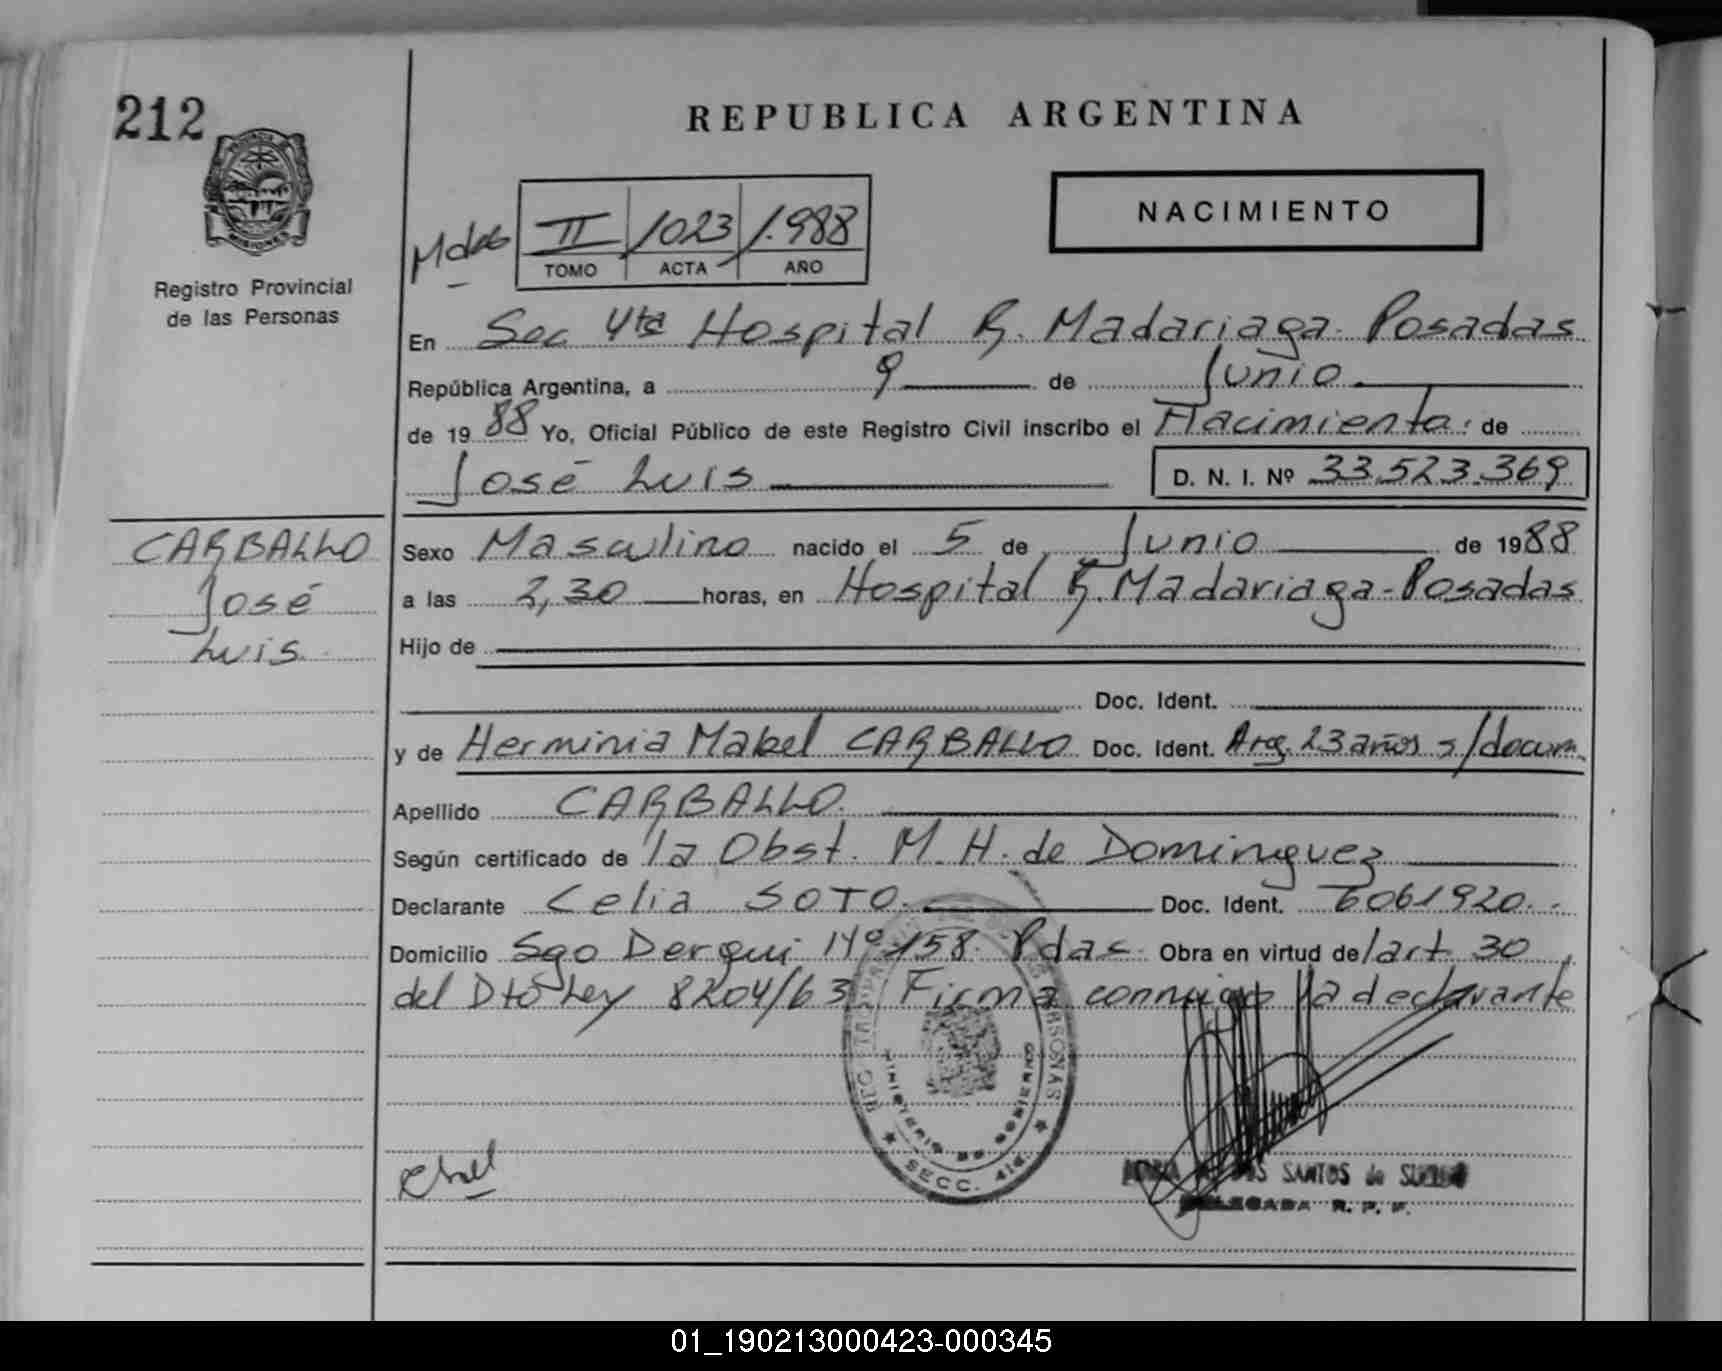 212
REPUBLICA ARGENTINA
PROVINCIA
MISIONES
Registro Provincial
de las Personas
II 1023 1.988
TOMO ACTA AÑO
NACIMIENTO
En Sec 4ta Hospital R. Madariaga - Posadas
República Argentina, a 9 de Junio
de 1988 Yo, Oficial Público de este Registro Civil inscribo el Nacimiento de
José Luis D. N. I. Nº 33.523.369
CARBALLO
José
Luis
Sexo Masculino nacido el 5 de Junio de 1988
a las 2,30 horas, en Hospital R. Madariaga - Posadas
Hijo de
Doc. Ident.
y de Herminia Mabel CARBALLO Doc. Ident. Arg. 23 años s/docum.
Apellido CARBALLO.
Según certificado de la Obst. M. H. de Dominguez
Declarante Celia SOTO. Doc. Ident. 6061920.
Domicilio Sgo Derqui Nº 158. Pdas. Obra en virtud del art. 30
del Dto Ley 8204/63. Firma conmigo la declarante
MINISTERIO DE GOBIERNO
SECC. 4ta.
SANTOS de
R. P. P.
01_190213000423-000345